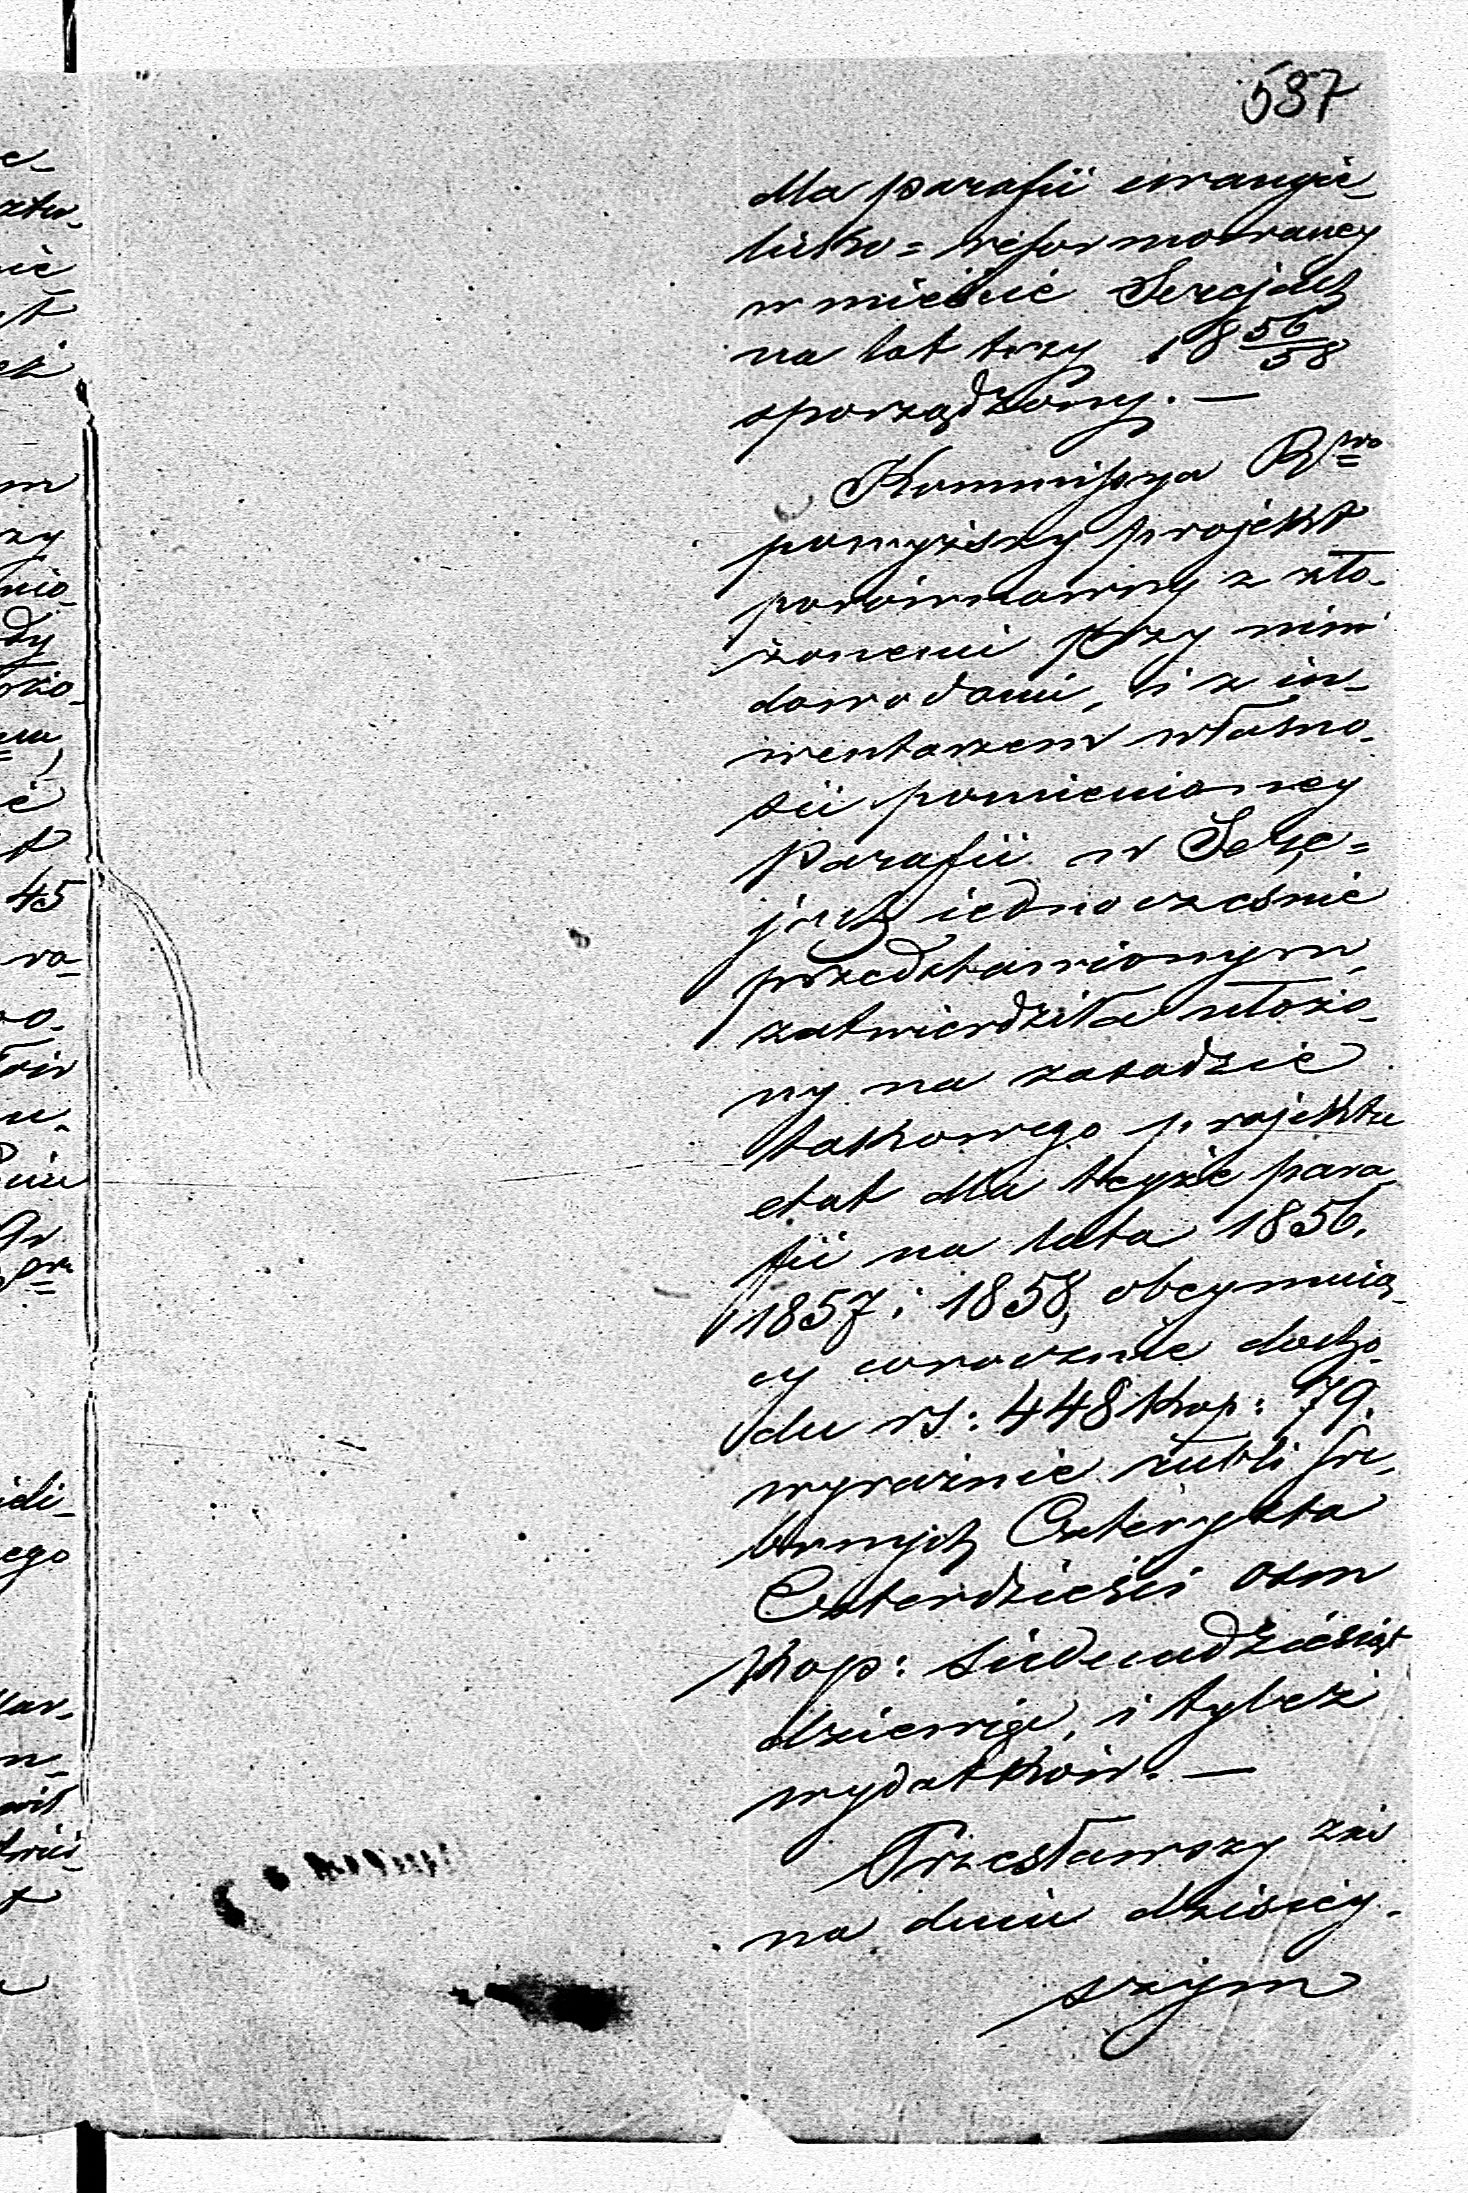 537
dla parafii ewangie-
licko=reformowaney
w mieście Serejach
na lat trzy 18 56/58
sporządzony. —
Kommissya R^wa
powyższy projekt
porównawszy z zło-
żonemi przy nim
dowodami, i z in-
wentarzem własno-
ści pomienioney
Parafii w Sere=
jach iednocześnie
przedstawionym,
zatwierdziła ułożo-
ny na zasadzie
takowego projektu
etat dla teyże para-
fii na lata 1856,
1857 i 1858, obeymuią-
cy corocznie docho-
du rs: 448 kop: 79.
wyraźnie rubli sre-
brnych Czterysta
Czterdzieści osm
kop: siedmdziesiąt
dziewięć, i tyleż
wydatków. —
Przesławszy
na dniu dzisiey-
szym
45
ego